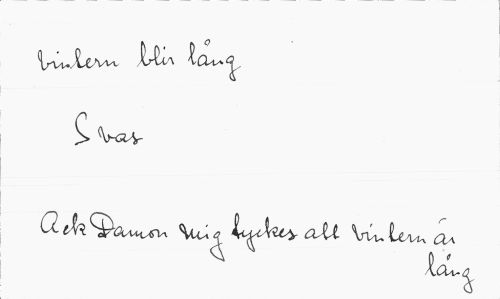 Vintern blir lång
Svar
Ack Damon mig tyckes att vintern är
lång